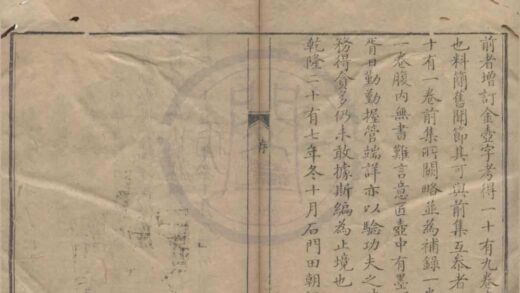 前者增訂金壺字考得一十有九卷
也料簡舊聞節其可與前集互叅者
十有一卷前集所闕略並為補錄一
一卷腹內無書難言意匠壺中有墨
胥日勤勤握管端詳亦以驗功夫之
務得貪多仍未敢據斯編為止境也
乾隆二十有七年冬十月石門田朝
序